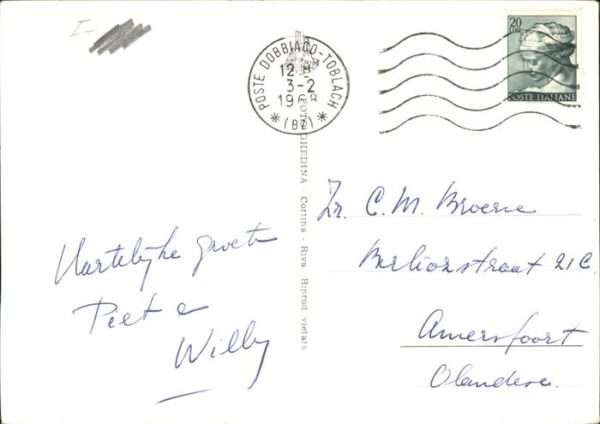 I-
POSTE DOBBIACO-TOBLACH
12.
3-2
1968
* (BZ) *
20
POSTE ITALIANE
FOTO GHEDINA Cortina - Riva Riprod. vietata
Hartelijke groeten
Peet en
Willy
Zr. C. M. Broerse
Berliozstraat 21 C.
Amersfoort
Olandese.